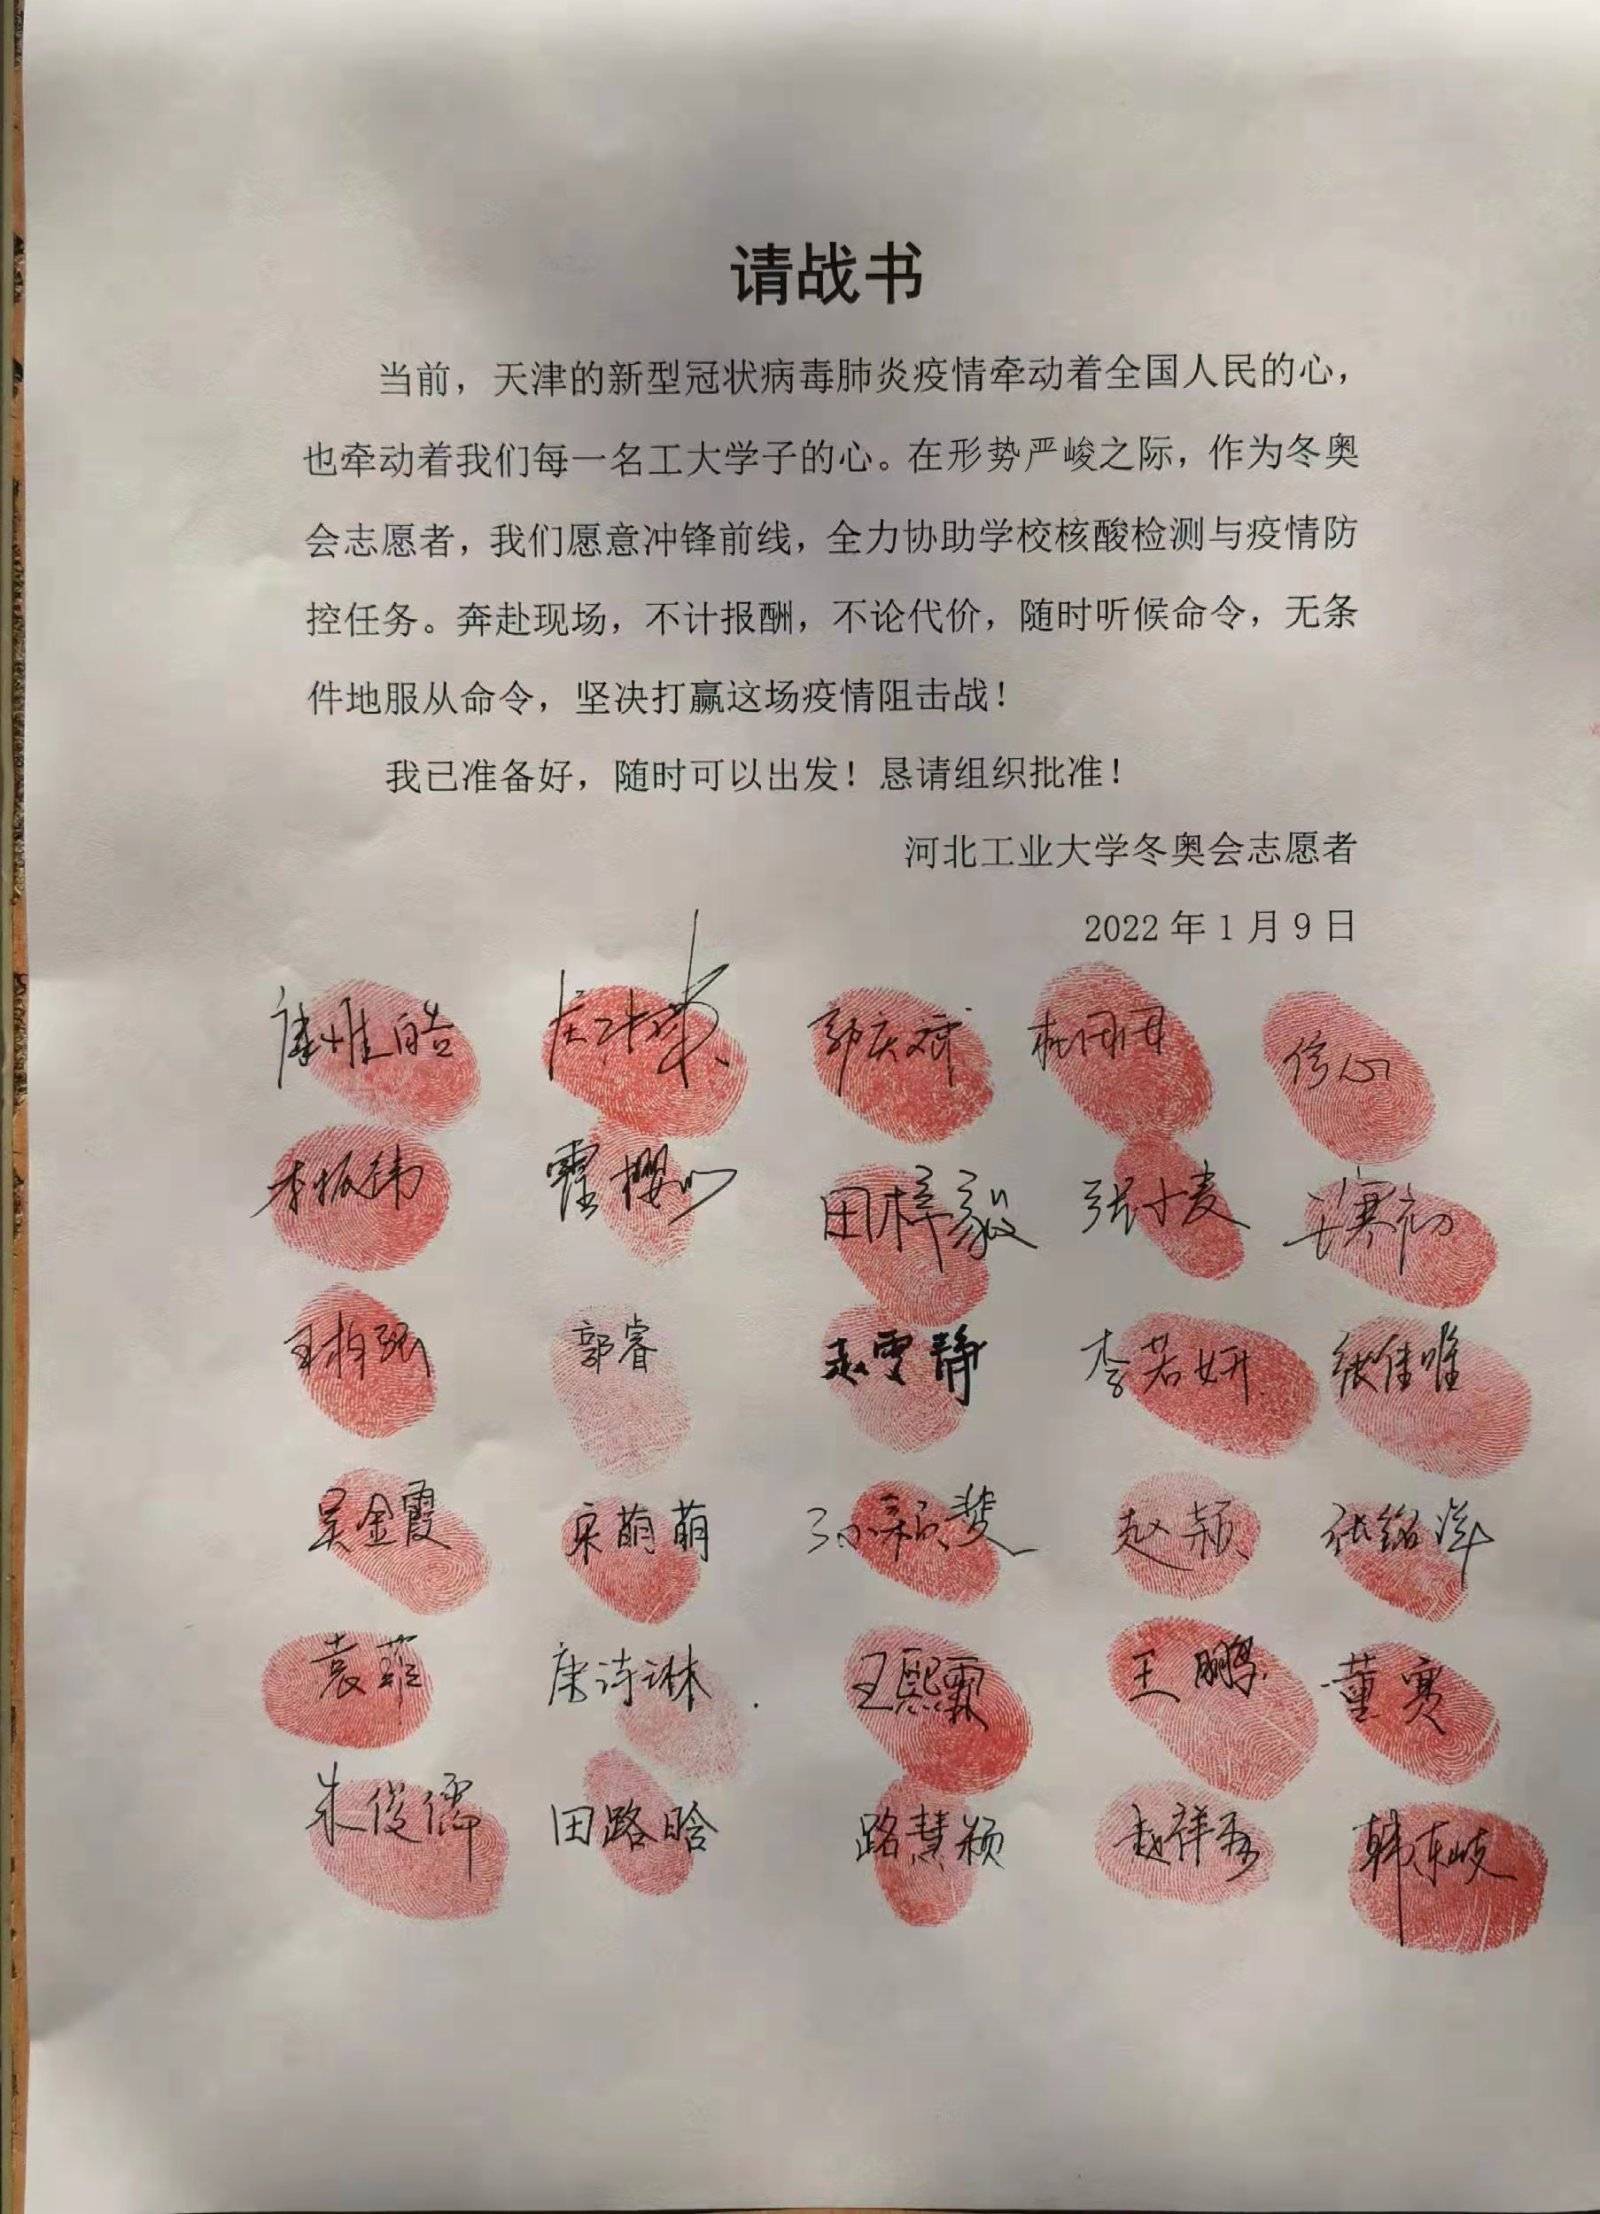 请战书
当前，天津的新型冠状病毒肺炎疫情牵动着全国人民的心，
也牵动着我们每一名工大学子的心。在形势严峻之际，作为冬奥
会志愿者，我们愿意冲锋前线，全力协助学校核酸检测与疫情防
控任务。奔赴现场，不计报酬，不论代价，随时听候命令，无条
件地服从命令，坚决打赢这场疫情阻击战！
我已准备好，随时可以出发！恳请组织批准！
河北工业大学冬奥会志愿者
2022 年 1 月 9 日
康惟皓 郭庆斌 杜团团 信心
李振伟 田梓毅 张小麦 王寒初
郭睿 赵雪静 李若妍 张佳唯
吴金霞 宋萌萌 孙颖斐 赵颖 张铭洋
袁菲 唐诗琳 王熙霖 王鹏 董赛
朱俊儒 田路晗 路慧颖 赵祥秀 韩东岐